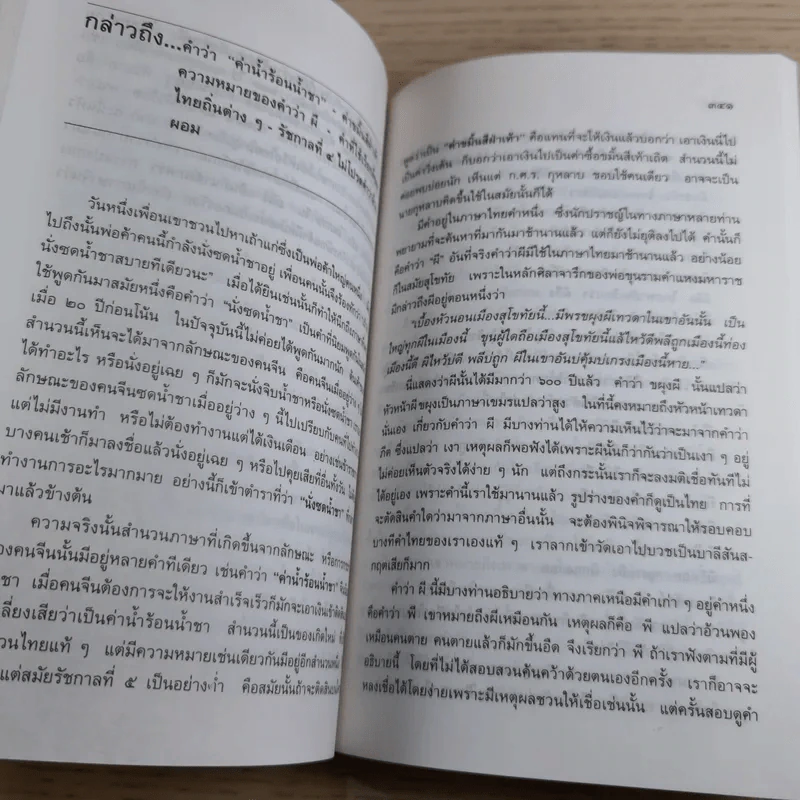 กล่าวถึง...คำว่า "ค่าน้ำร้อนน้ำชา" -
ความหมายของคำว่า ผี -
ไทยถิ่นต่าง ๆ - รัชกาลที่ ๕ ไม่โปรด
ผอม
วันหนึ่งเพื่อนเขาชวนไปหาเถ้าแก่ซึ่งเป็นพ่อค้าใหญ่
ไปถึงนั้นพ่อค้าคนนี้กำลังนั่งซดน้ำชาอยู่ เพื่อนคนนั้นจึงร้อง
นั่งซดน้ำชาสบายทีเดียวนะ" เมื่อได้ยินเช่นนั้นก็ทำให้นึกถึง
ใช้พูดกันมาสมัยหนึ่งคือคำว่า "นั่งซดน้ำชา" เป็นคำที่นิยมพูด
เมื่อ ๒๐ ปีก่อนโน้น ในปัจจุบันนี้ไม่ค่อยได้พูดกันมากนัก
สำนวนนี้เห็นจะได้มาจากลักษณะของคนจีน คือคนจีนเมื่ออยู่ว่าง
ได้ทำอะไร หรือนั่งอยู่เฉย ๆ ก็มักจะนั่งจิบน้ำชาหรือนั่งซดน้ำชา
ลักษณะของคนจีนซดน้ำชาเมื่ออยู่ว่าง ๆ นี้ไปเปรียบกับคนที่
แต่ไม่มีงานทำ หรือไม่ต้องทำงานแต่ได้เงินเดือน อย่างเช่นข้าราชการ
บางคนเช้าก็มาลงชื่อแล้วนั่งอยู่เฉย ๆ หรือไปคุยเสียที่อื่นทั้งวัน
ทำงานการอะไรมากมาย อย่างนี้ก็เข้าตำราที่ว่า "นั่งซดน้ำชา"
มาแล้วข้างต้น
ความจริงนั้นสำนวนภาษาที่เกิดขึ้นจากลักษณะ หรือการ
ของคนจีนนั้นมีอยู่หลายคำทีเดียว เช่นคำว่า "ค่าน้ำร้อนน้ำชา"
ชา เมื่อคนจีนต้องการจะให้งานสำเร็จเร็วก็มักจะเอาเงินเข้า
เลี่ยงเสียว่าเป็นค่าน้ำร้อนน้ำชา สำนวนนี้เป็นของเกิดใหม่
วนไทยแท้ ๆ แต่มีความหมายเช่นเดียวกันมีอยู่อีกสำนวนหนึ่ง
แต่สมัยรัชกาลที่ ๕ เป็นอย่างต่ำ คือสมัยนั้นถ้าจะติดสินบน
๓๔๑
พูดว่าเป็น "ค่าขมิ้นสีฝ่าเท้า" คือแทนที่จะให้เงินแล้วบอกว่า เอาเงินนี้ไป
เป็นค่าวิ่งเต้น ก็บอกว่าเอาเงินไปเป็นค่าซื้อขมิ้นสีเท้าเถิด สำนวนนี้ไม่
ค่อยพบบ่อยนัก เห็นแต่ ก.ศ.ร. กุหลาบ ชอบใช้คนเดียว อาจจะเป็น
นายกุหลาบคิดขึ้นใช้ในสมัยนั้นก็ได้
มีคำอยู่ในภาษาไทยคำหนึ่ง ซึ่งนักปราชญ์ในทางภาษาหลายท่าน
พยายามที่จะค้นหาที่มากันมาช้านานแล้ว แต่ก็ยังไม่ยุติลงไปได้ คำนั้นก็
คือคำว่า "ผี" อันที่จริงคำว่าผีมีใช้ในภาษาไทยมาช้านานแล้ว อย่างน้อย
ก็ในสมัยสุโขทัย เพราะในหลักศิลาจารึกของพ่อขุนรามคำแหงมหาราช
มีกล่าวถึงผีอยู่ตอนหนึ่งว่า
"เบื้องหัวนอนเมืองสุโขทัยนี้...มีพรขผุงผีเทวดาในเขาอันนั้น เป็น
ใหญ่ทุกผีในเมืองนี้ ขุนผู้ใดถือเมืองสุโขทัยนี้แล้ไหว้ดีพลีถูกเมืองนี้ท่อง
เมืองนี้ดี ผีไหว้บ่ดี พลีบ่ถูก ผีในเขาอันบ่คุ้มบ่เกรงเมืองนี้หาย..."
นี่แสดงว่าผีนั้นได้มีมากว่า ๖๐๐ ปีแล้ว คำว่า ขผุงผี นั้นแปลว่า
หัวหน้าผีขผุงเป็นภาษาเขมรแปลว่าสูง ในที่นี้คงหมายถึงหัวหน้าเทวดา
นั่นเอง เกี่ยวกับคำว่า ผี มีบางท่านได้ให้ความเห็นไว้ว่าจะมาจากคำว่า
ภิต ซึ่งแปลว่า เงา เหตุผลก็พอฟังได้เพราะผีนั้นก็ว่ากันว่าเป็นเงา ๆ อยู่
ไม่ค่อยเห็นตัวจริงได้ง่าย ๆ นัก แต่ถึงกระนั้นเราก็จะลงมติเชื่อทันทีไม่
ได้อยู่เอง เพราะคำนี้เราใช้มานานแล้ว รูปร่างของคำก็ดูเป็นไทย การที่
จะตัดสินคำใดว่ามาจากภาษาอื่นนั้น จะต้องพินิจพิจารณาให้รอบคอบ
บางทีคำไทยของเราเองแท้ ๆ เราลากเข้าวัดเอาไปบวชเป็นบาลีสันส-
กฤตเสียก็มาก
คำว่า ผี นี้มีบางท่านอธิบายว่า ทางภาคเหนือมีคำเก่า ๆ อยู่คำหนึ่ง
คือคำว่า พี เขาหมายถึงผีเหมือนกัน เหตุผลก็คือ พี แปลว่าอ้วนพอง
เหมือนคนตาย คนตายแล้วก็มักขึ้นอืด จึงเรียกว่า พี ถ้าเราฟังตามที่มีผู้
อธิบายนี้ โดยที่ไม่ได้สอบสวนค้นคว้าด้วยตนเองอีกครั้ง เราก็อาจจะ
หลงเชื่อได้โดยง่ายเพราะมีเหตุผลชวนให้เชื่อเช่นนั้น แต่ครั้นสอบดูคำ